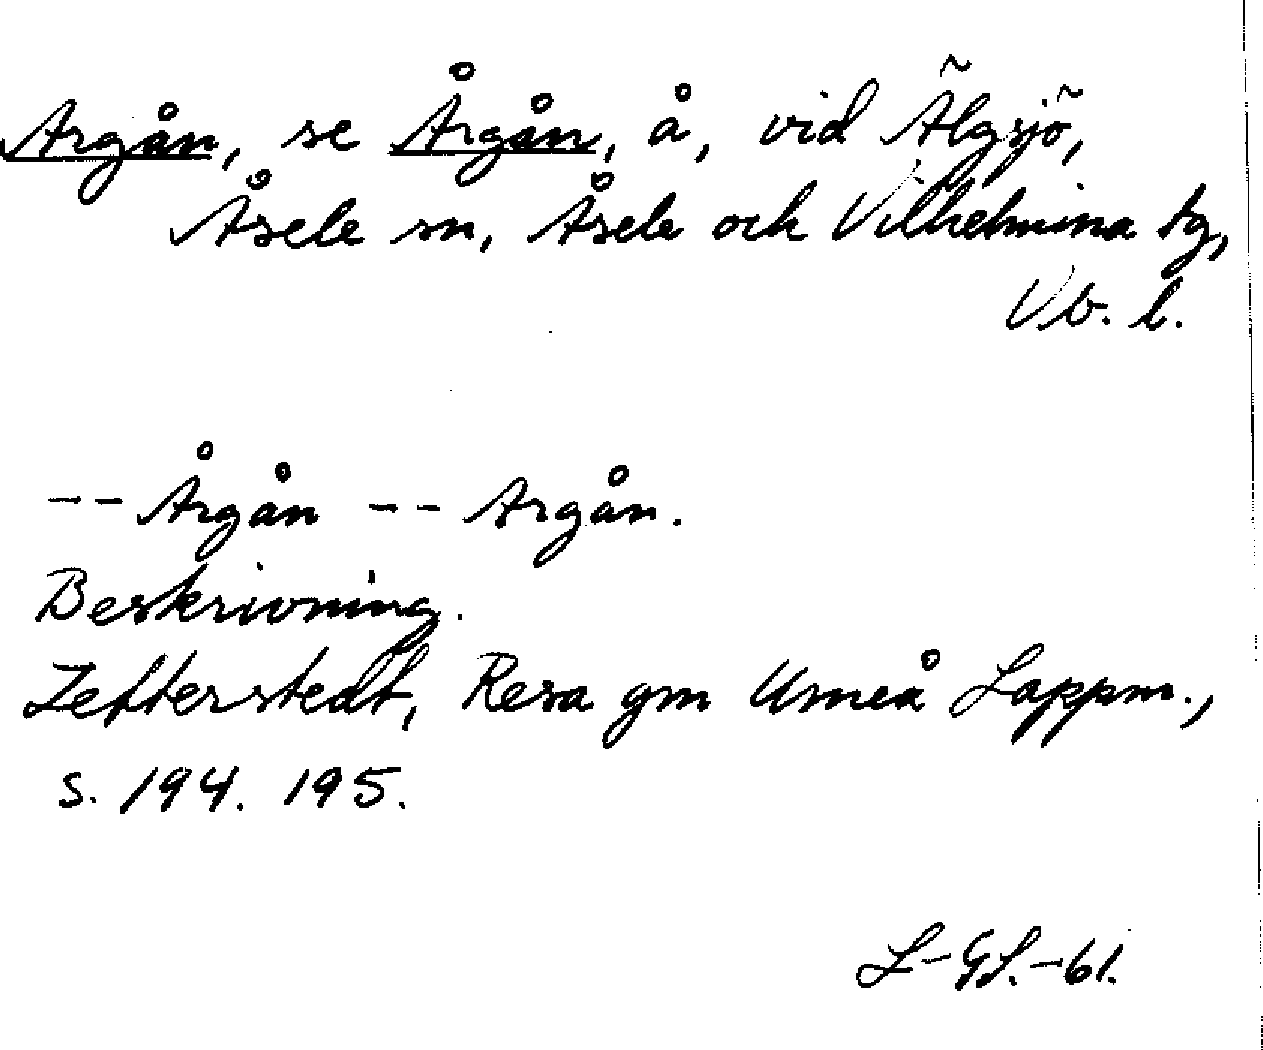 Argån, se Årgån, å, vid Älgsjö,
Åsele sn, Åsele och Vilhelmina tg,
Vb. l.
-- Årgån -- Argån.
Beskrivning.
Zetterstedt, Resa gm Umeå Lappm.,
s. 194. 195.
L-GS.-61.